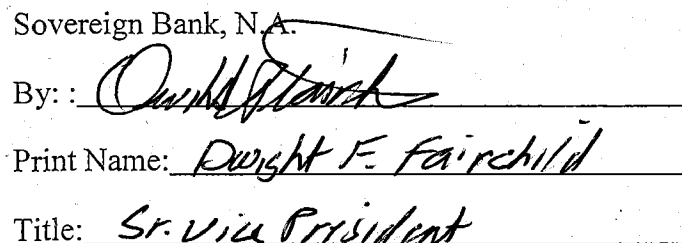 Sovereign Bank, N.A.
By: :
Print Name: Dwight F. Fairchild
Title: Sr. Vice President